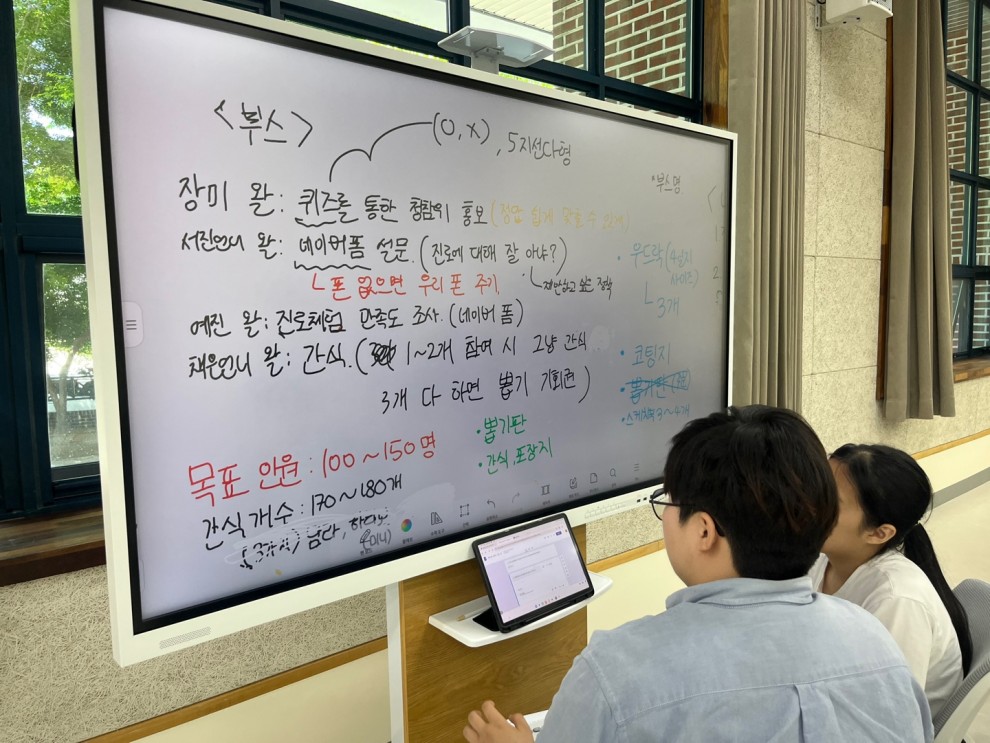 <부스>
(O, X), 5지선다형
장미 왈: 퀴즈를 통한 청참위 홍보 (정답 쉽게 맞출 수 있게)
서진언니 왈: 네이버폼 설문. (진로에 대해 잘 아냐?)
ㄴ폰 없으면 우리 폰 주기
제안하고 싶은 정책
예진 왈: 진로체험 만족도 조사. (네이버 폼)
채은언니 왈: 간식. ( 1~2개 참여 시 그냥 간식
3개 다 하면 뽑기 기회권)
목표 인원: 100~150명
간식 개수: 170~180개
·뽑기판
·간식, 포장지
*부스명
<
1.
2
· 우드락 (4절지
사이즈)
ㄴ 3개
· 코팅지
· 스케치북 3~4개